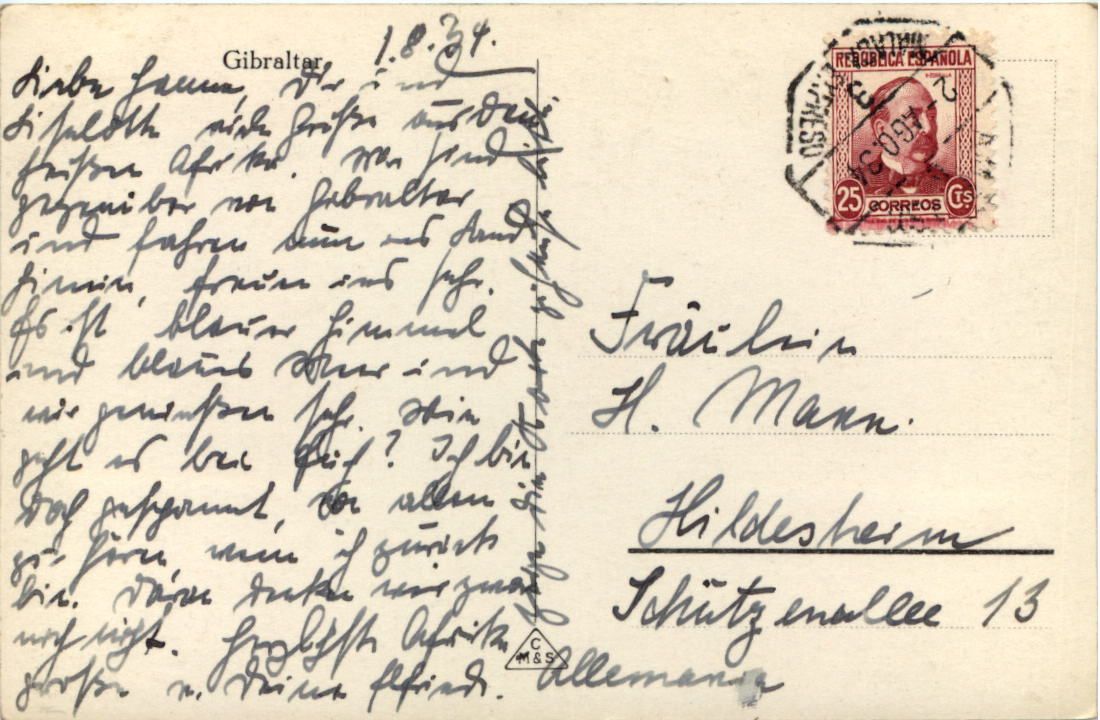 Gibraltar
1.8.34.
Liebe Hanne, Dir und
Liselotte viele Grüße aus dem
heißen Afrika. Wir sind
gegenüber von Gibraltar
und fahren nun ins Land
hinein, freuen uns sehr.
Es ist blauer Himmel
und blaues Meer und
wir genießen sehr. Wie
geht es bei Euch? Ich bin
doch gespannt, von allem
zu hören, wenn ich zurück
bin. Daran denken wir zwar
noch nicht. Herzlichste Afrika
grüße v. Deiner Elfriede.
die Karte
REPUBLICA ESPAÑOLA
25 CORREOS Cts
2 AGO.34
Fräulein
H. Mann.
Hildesheim
Schützenallee 13
Allemania
C
M&S